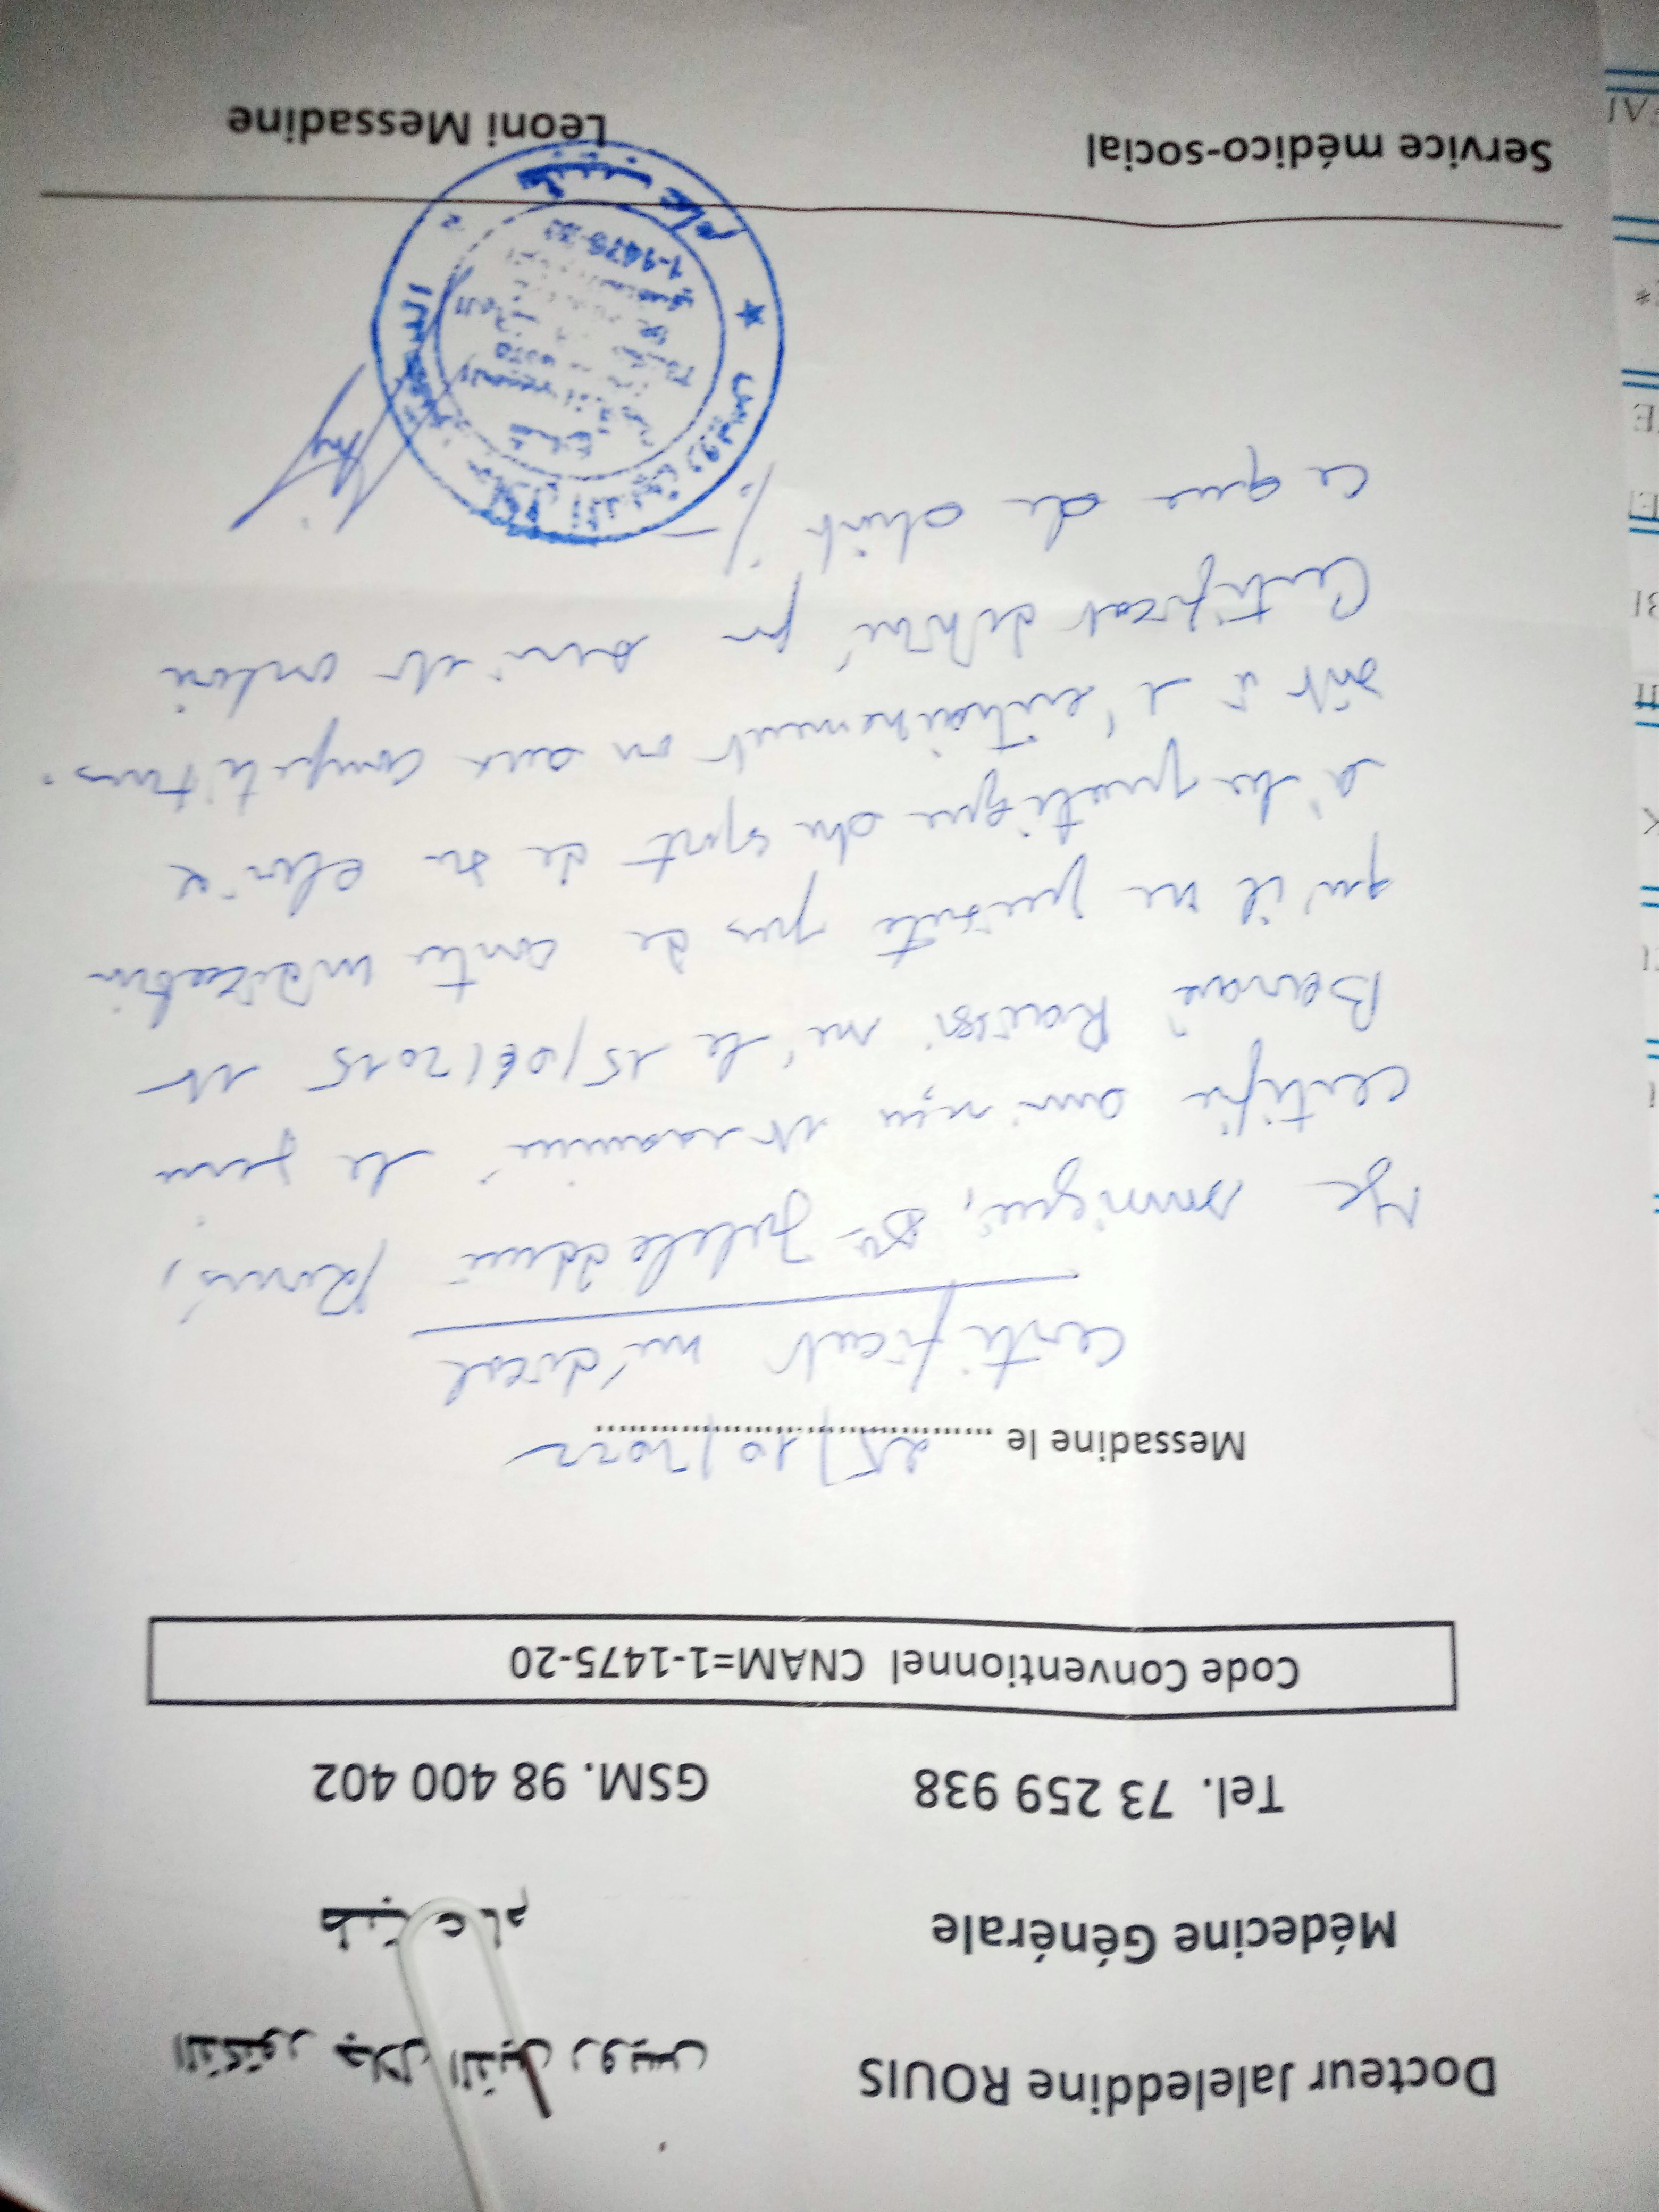 Docteur Jaleleddine ROUIS الدكتور جلال الدين رويس
Médecine Générale طب عام
Tel. 73 259 938 GSM. 98 400 402
Code Conventionnel CNAM=1-1475-20
Messadine le 25/10/2022
Certificat médical
Je soussigné, Dr Jaleleddine Rouis,
certifie avoir reçu et examiné le jeune
Kaissi né le 15/06/2015 et
qu'il ne présente pas de contre indication
à la pratique du sport de son choix
soit à l'entraînement ou aux compétitions.
Certificat délivré pr servir et valoir
ce que de droit
رويس
Service médico-social Leoni Messadine